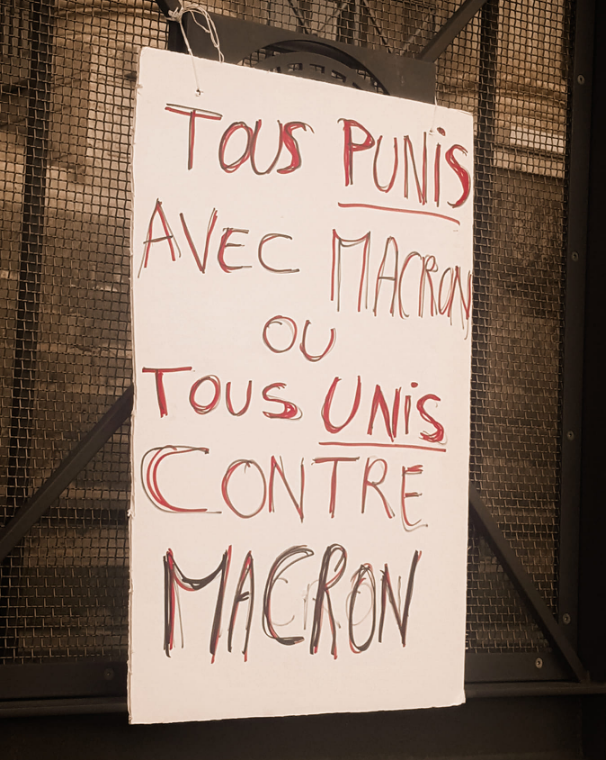 TOUS PUNIS
AVEC MACRON
OU
TOUS UNIS
CONTRE
MACRON